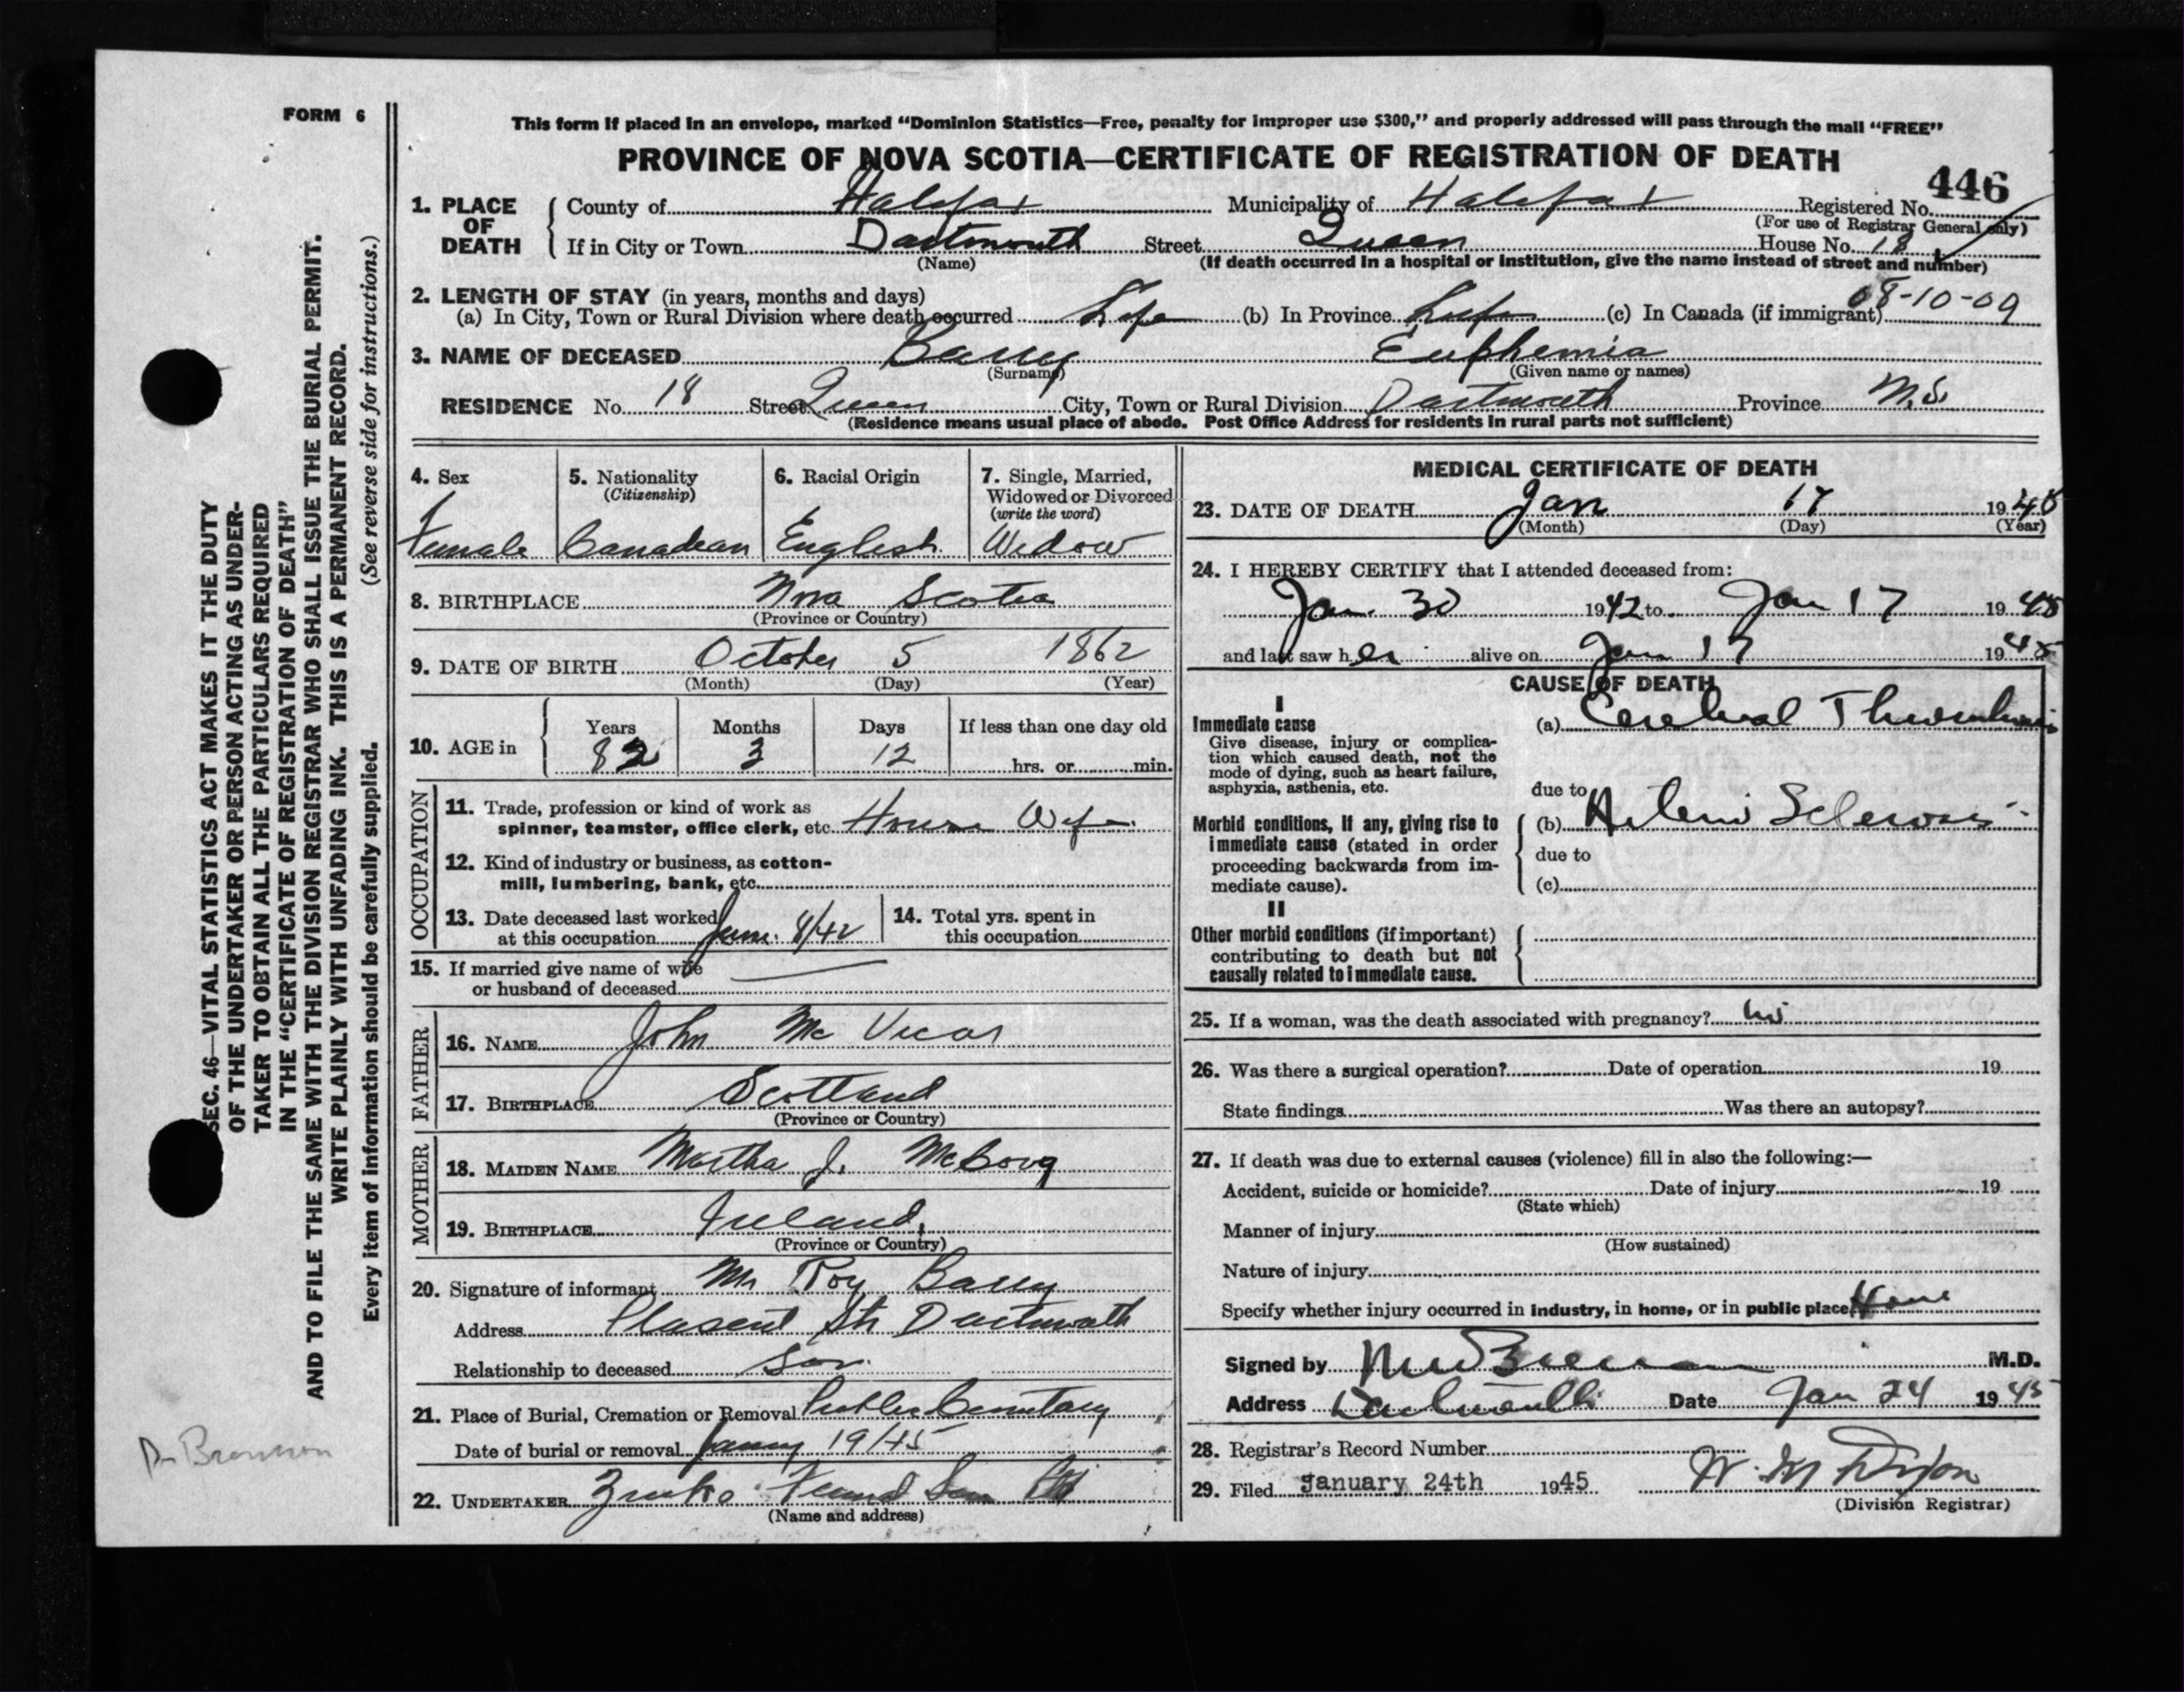 FORM 6
This form if placed in an envelope, marked “Dominion Statistics—Free, penalty for improper use $300,” and properly addressed will pass through the mail “FREE”
PROVINCE OF NOVA SCOTIA—CERTIFICATE OF REGISTRATION OF DEATH
446
1. PLACE OF DEATH
County of Halifax Municipality of Halifax Registered No.
(For use of Registrar General only)
If in City or Town Dartmouth Street Queen House No. 18
(Name) (If death occurred in a hospital or institution, give the name instead of street and number)
2. LENGTH OF STAY (in years, months and days) 08-10-09
(a) In City, Town or Rural Division where death occurred Life (b) In Province Life (c) In Canada (if immigrant)
3. NAME OF DECEASED Barry Euphemia
(Surname) (Given name or names)
RESIDENCE No. 18 Street Queen City, Town or Rural Division Dartmouth Province N.S.
(Residence means usual place of abode. Post Office Address for residents in rural parts not sufficient)
4. Sex
Female
5. Nationality
(Citizenship)
Canadian
6. Racial Origin
English
7. Single, Married,
Widowed or Divorced
(write the word)
Widow
8. BIRTHPLACE Nova Scotia
(Province or Country)
9. DATE OF BIRTH October 5 1862
(Month) (Day) (Year)
10. AGE in
Years Months Days If less than one day old
82 3 12 hrs. or min.
OCCUPATION
11. Trade, profession or kind of work as
spinner, teamster, office clerk, etc. House Wife
12. Kind of industry or business, as cotton-
mill, lumbering, bank, etc.
13. Date deceased last worked
at this occupation 8/42
14. Total yrs. spent in
this occupation
15. If married give name of wife
or husband of deceased
FATHER
16. NAME John Mc Vicar
17. BIRTHPLACE Scotland
(Province or Country)
MOTHER
18. MAIDEN NAME Martha J.
19. BIRTHPLACE Ireland
(Province or Country)
20. Signature of informant Mr Roy Barry
Address Plasent St Dartmouth
Relationship to deceased Son
21. Place of Burial, Cremation or Removal Public Cemetary
Date of burial or removal 19/45
22. UNDERTAKER
(Name and address)
MEDICAL CERTIFICATE OF DEATH
23. DATE OF DEATH Jan 17 1945
(Month) (Day) (Year)
24. I HEREBY CERTIFY that I attended deceased from:
Jan. 30 1942 to Jan 17 1945
and last saw her alive on Jan 17 1945
CAUSE OF DEATH
I
Immediate cause
Give disease, injury or complica-
tion which caused death, not the
mode of dying, such as heart failure,
asphyxia, asthenia, etc.
(a) Cerebral Thrombosis
due to
Morbid conditions, if any, giving rise to
immediate cause (stated in order
proceeding backwards from im-
mediate cause).
(b) Arterio Sclerosis
due to
(c)
II
Other morbid conditions (if important)
contributing to death but not
causally related to immediate cause.
25. If a woman, was the death associated with pregnancy? No
26. Was there a surgical operation? Date of operation 19
State findings Was there an autopsy?
27. If death was due to external causes (violence) fill in also the following:—
Accident, suicide or homicide? Date of injury 19
(State which)
Manner of injury
(How sustained)
Nature of injury
Specify whether injury occurred in industry, in home, or in public place
Signed by M.D.
Address Dartmouth Date Jan 24 1945
28. Registrar's Record Number
29. Filed January 24th 1945 W. M Dixon
(Division Registrar)
SEC. 46—VITAL STATISTICS ACT MAKES IT THE DUTY
OF THE UNDERTAKER OR PERSON ACTING AS UNDER-
TAKER TO OBTAIN ALL THE PARTICULARS REQUIRED
IN THE “CERTIFICATE OF REGISTRATION OF DEATH”
AND TO FILE THE SAME WITH THE DIVISION REGISTRAR WHO SHALL ISSUE THE BURIAL PERMIT.
WRITE PLAINLY WITH UNFADING INK. THIS IS A PERMANENT RECORD.
Every item of information should be carefully supplied. (See reverse side for instructions.)